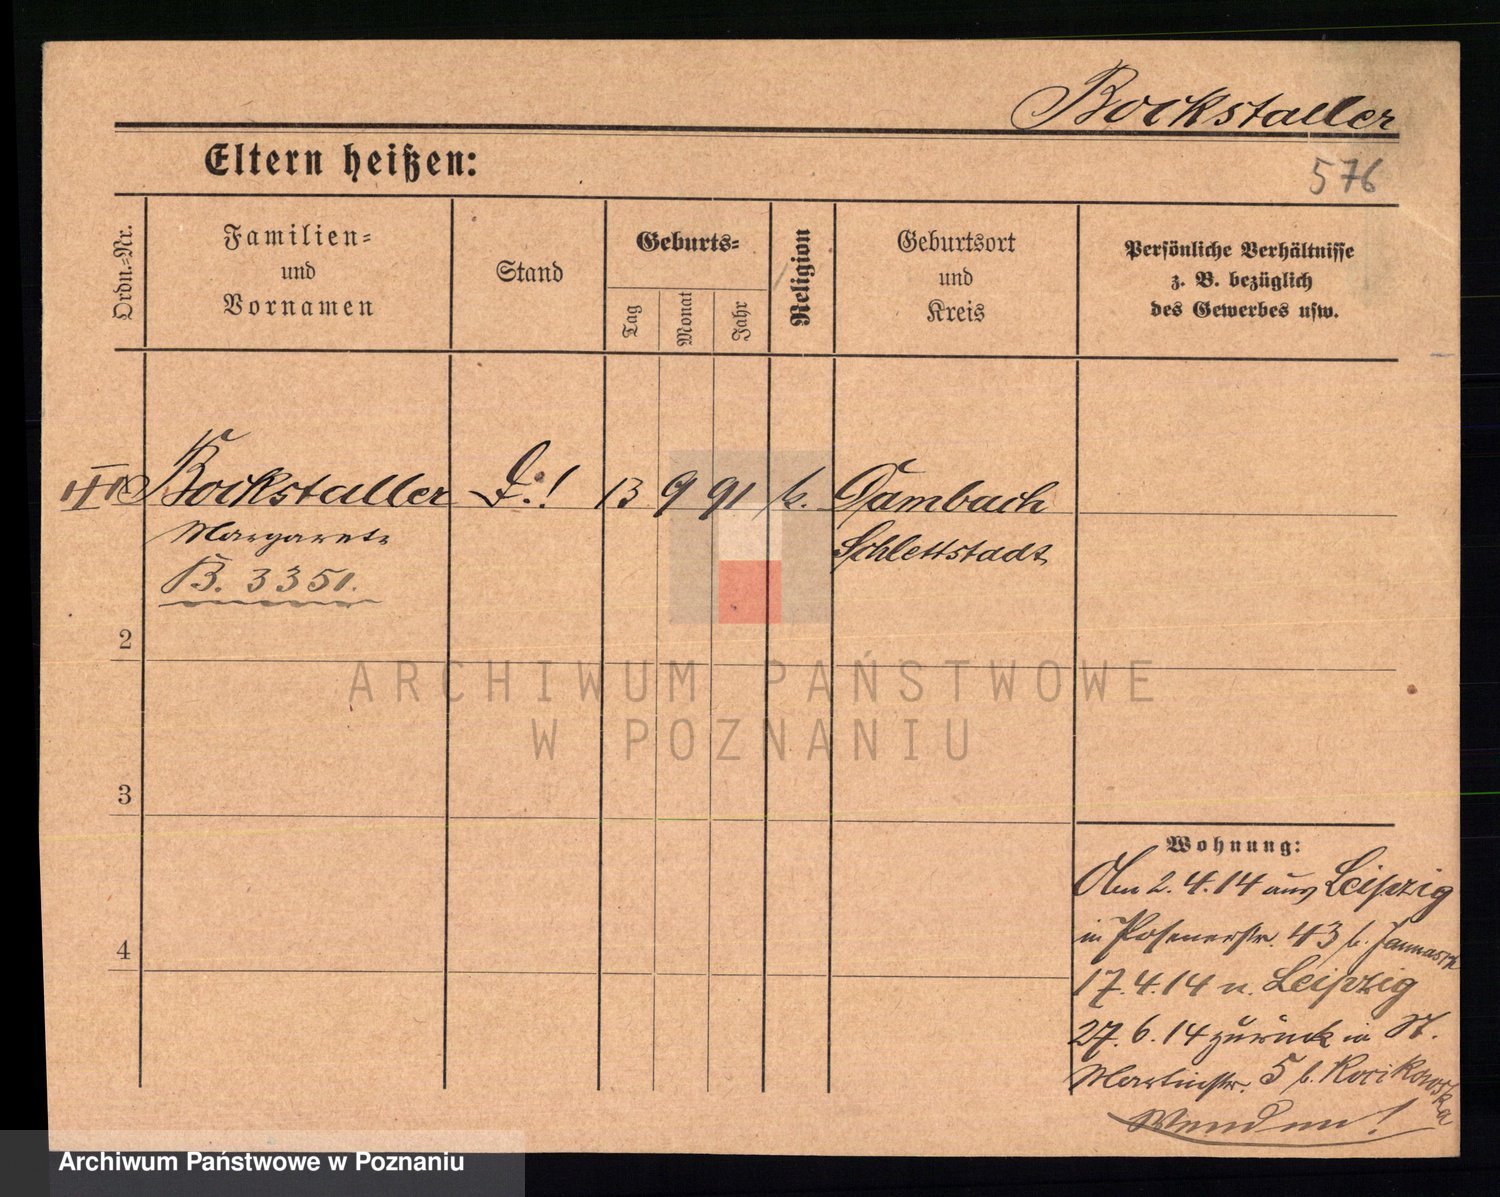 Bockstaller
Eltern heißen:
576
Ordn.-Nr.
Familien-
und
Vornamen
Stand
Geburts-
Tag
Monat
Jahr
Religion
Geburtsort
und
Kreis
Persönliche Verhältnisse
z. B. bezüglich
des Gewerbes usw.
Bockstaller
13 9 91 k. Dambach
Margarete
Schlettstadt
B. 3351.
2
3
4
Wohnung:
Am 2.4.14 aus Leipzig
in Posenerstr. 43 b.
17.4.14 n. Leipzig
27.6.14 zurück in St.
Martinstr. 5 b. Kocikowska
Wenden!
ARCHIWUM PAŃSTWOWE
W POZNANIU
Archiwum Państwowe w Poznaniu